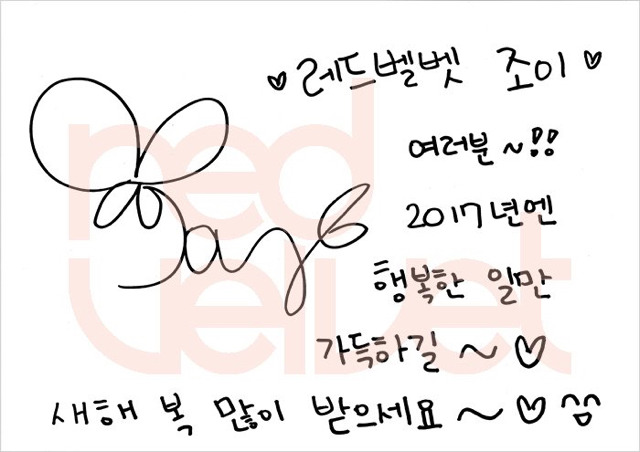 ♡ 레드벨벳 조이 ♡
여러분 ~!!
2017년엔
행복한 일만
가득하길 ~ ♡
새해 복 많이 받으세요 ~ ♡ ^^
red
velvet